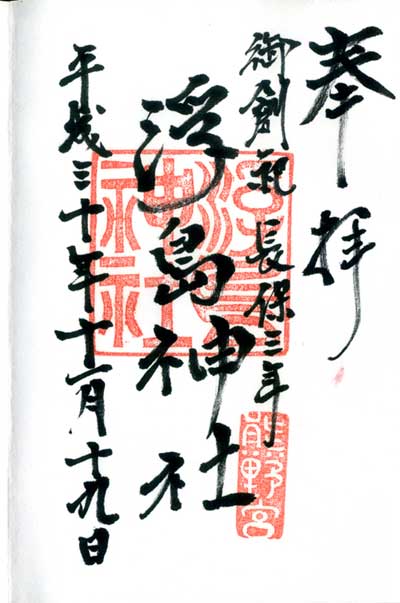 奉拝
御創祀 長保三年
浮島神社
平成三十年十一月十九日
浮島
神社
熊野宮